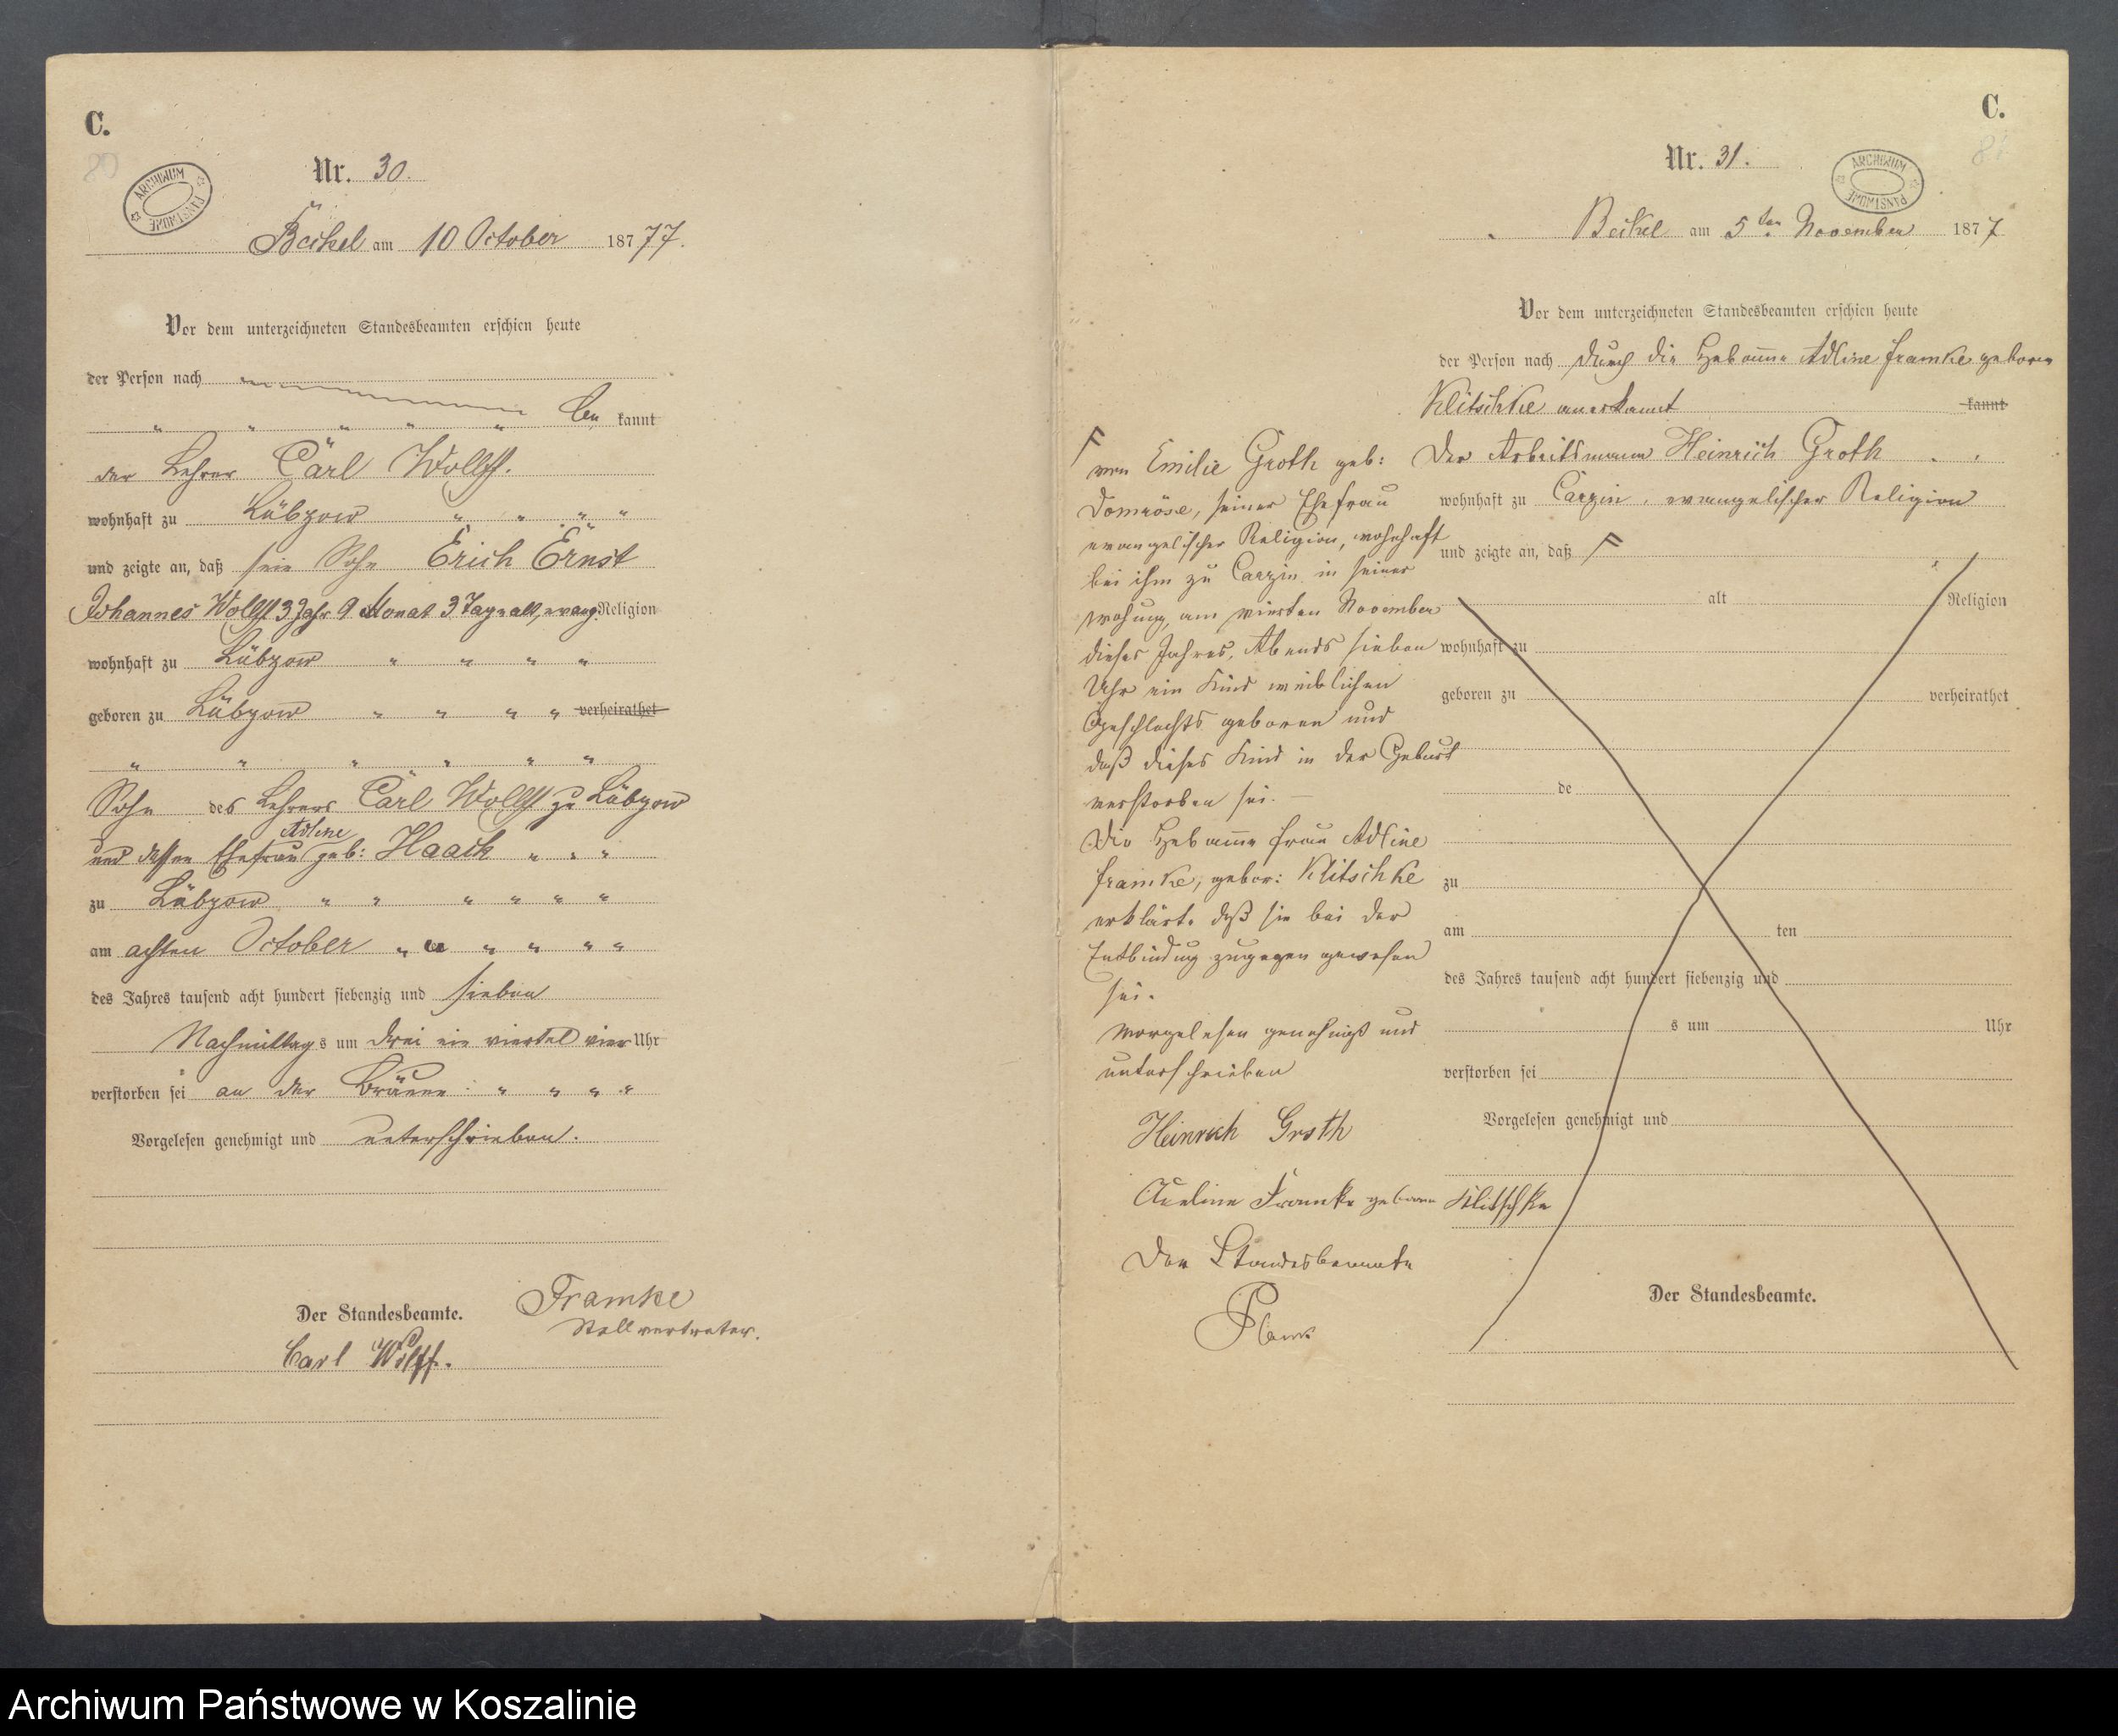 C.
80
ARCHIWUM PAŃSTWOWE
Nr. 30.
Beikel am 10 October 18777.
Vor dem unterzeichneten Standesbeamten erschien heute
der Person nach
be kannt
der Lehrer Carl Wolff.
wohnhaft zu Lübzow " " " "
und zeigte an, daß sein Sohn Erich Ernst
Johannes Wolff 3 Jahr 9 Monat 3 Tage alt, evang. Religion
wohnhaft zu Lübzow " " " "
geboren zu Lübzow " " " " verheirathet
" " " " " "
Sohn des Lehrers Carl Wolff zu Lübzow
Adline
und dessen Ehefrau geb: Haack " " "
zu Lübzow " " " " " "
am achten October " " " " " "
des Jahres tausend acht hundert siebenzig und sieben
Nachmittags um drei ein viertel vier Uhr
verstorben sei an der Bräune " " " "
Vorgelesen genehmigt und unterschrieben.
Der Standesbeamte. Framke
Stellvertreter.
Carl Wolff.
C.
81
Nr. 31.
ARCHIWUM PAŃSTWOWE
Beikel am 5ten November 1877
Vor dem unterzeichneten Standesbeamten erschien heute
der Person nach durch die Hebamme Adline Framke geboren
Klitschke anerkannt kannt
Der Arbeitsmann Heinrich Groth
wohnhaft zu Carzin, evangelischer Religion
und zeigte an, daß F
alt Religion
wohnhaft zu
geboren zu verheirathet
de
zu
am ten
des Jahres tausend acht hundert siebenzig und
s um Uhr
verstorben sei
Vorgelesen genehmigt und
Der Standesbeamte.
F von Emilie Groth geb:
Domröse, seiner Ehefrau
evangelischer Religion, wohnhaft
bei ihm zu Carzin in seiner
Wohnung, am vierten November
dieses Jahres, Abends sieben
Uhr ein Kind weiblichen
Geschlechts geboren und
daß dieses Kind in der Geburt
verstorben sei.
Die Hebamme Frau Adline
Framke, gebor: Klitschke
erklärte daß sie bei der
Entbindung zugegen gewesen
sei.
Vorgelesen genehmigt und
unterschrieben
Heinrich Groth
Aueline Framke geboren Klitschke
Der Standesbeamte
Archiwum Państwowe w Koszalinie